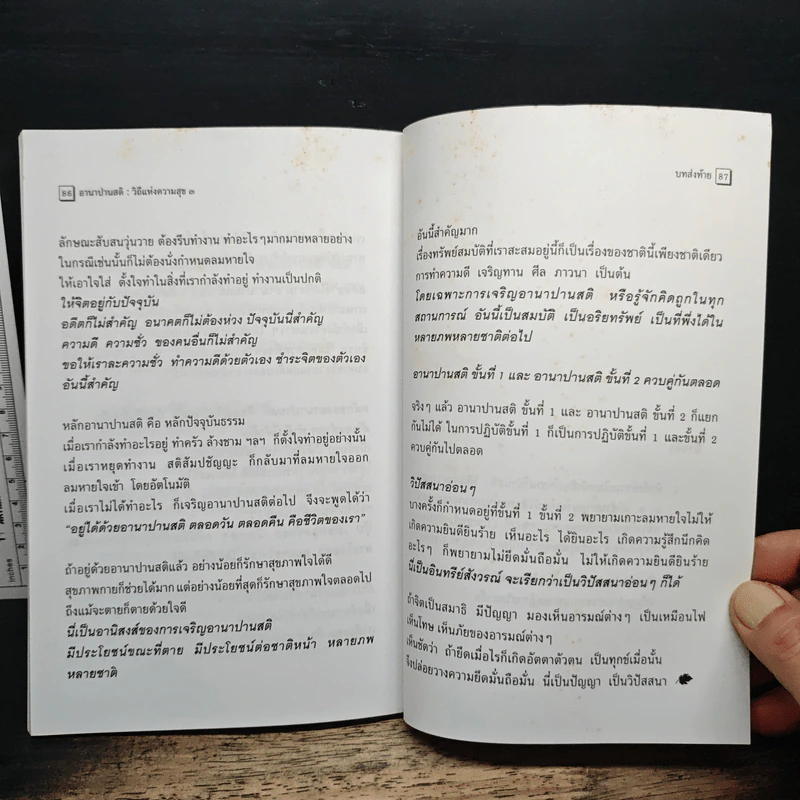 86 อานาปานสติ : วิถีแห่งความสุข ๓
ลักษณะสับสนวุ่นวาย ต้องรีบทำงาน ทำอะไรๆมากมายหลายอย่าง
ในกรณีเช่นนั้นก็ไม่ต้องนั่งกำหนดลมหายใจ
ให้เอาใจใส่ ตั้งใจทำในสิ่งที่เรากำลังทำอยู่ ทำงานเป็นปกติ
ให้จิตอยู่กับปัจจุบัน
อดีตก็ไม่สำคัญ อนาคตก็ไม่ต้องห่วง ปัจจุบันนี้สำคัญ
ความดี ความชั่ว ของคนอื่นก็ไม่สำคัญ
ขอให้เราละความชั่ว ทำความดีด้วยตัวเอง ชำระจิตของตัวเอง
อันนี้สำคัญ
หลักอานาปานสติ คือ หลักปัจจุบันธรรม
เมื่อเรากำลังทำอะไรอยู่ ทำครัว ล้างชาม ฯลฯ ก็ตั้งใจทำอยู่อย่างนั้น
เมื่อเราหยุดทำงาน สติสัมปชัญญะ ก็กลับมาที่ลมหายใจออก
ลมหายใจเข้า โดยอัตโนมัติ
เมื่อเราไม่ได้ทำอะไร ก็เจริญอานาปานสติต่อไป จึงจะพูดได้ว่า
“อยู่ได้ด้วยอานาปานสติ ตลอดวัน ตลอดคืน คือชีวิตของเรา”
ถ้าอยู่ด้วยอานาปานสติแล้ว อย่างน้อยก็รักษาสุขภาพใจได้ดี
สุขภาพกายก็ช่วยได้มาก แต่อย่างน้อยที่สุดก็รักษาสุขภาพใจตลอดไป
ถึงแม้จะตายก็ตายด้วยใจดี
นี่เป็นอานิสงส์ของการเจริญอานาปานสติ
มีประโยชน์ขณะที่ตาย มีประโยชน์ต่อชาติหน้า หลายภพ
หลายชาติ
บทส่งท้าย 87
อันนี้สำคัญมาก
เรื่องทรัพย์สมบัติที่เราสะสมอยู่นี้ก็เป็นเรื่องของชาตินี้เพียงชาติเดียว
การทำความดี เจริญทาน ศีล ภาวนา เป็นต้น
โดยเฉพาะการเจริญอานาปานสติ หรือรู้จักคิดถูกในทุก
สถานการณ์ อันนี้เป็นสมบัติ เป็นอริยทรัพย์ เป็นที่พึ่งได้ใน
หลายภพหลายชาติต่อไป
อานาปานสติ ขั้นที่ 1 และ อานาปานสติ ขั้นที่ 2 ควบคู่กันตลอด
จริงๆ แล้ว อานาปานสติ ขั้นที่ 1 และ อานาปานสติ ขั้นที่ 2 ก็แยก
กันไม่ได้ ในการปฏิบัติขั้นที่ 1 ก็เป็นการปฏิบัติขั้นที่ 1 และขั้นที่ 2
ควบคู่กันไปตลอด
วิปัสสนาอ่อนๆ
บางครั้งก็กำหนดอยู่ที่ขั้นที่ 1 ขั้นที่ 2 พยายามเกาะลมหายใจไม่ให้
เกิดความยินดียินร้าย เห็นอะไร ได้ยินอะไร เกิดความรู้สึกนึกคิด
อะไรๆ ก็พยายามไม่ยึดมั่นถือมั่น ไม่ให้เกิดความยินดียินร้าย
นี่เป็นอินทรีย์สังวรณ์ จะเรียกว่าเป็นวิปัสสนาอ่อนๆ ก็ได้
ถ้าจิตเป็นสมาธิ มีปัญญา มองเห็นอารมณ์ต่างๆ เป็นเหมือนไฟ
เห็นโทษ เห็นภัยของอารมณ์ต่างๆ
เห็นชัดว่า ถ้ายึดเมื่อไรก็เกิดอัตตาตัวตน เป็นทุกข์เมื่อนั้น
จึงปล่อยวางความยึดมั่นถือมั่น นี่เป็นปัญญา เป็นวิปัสสนา
inches